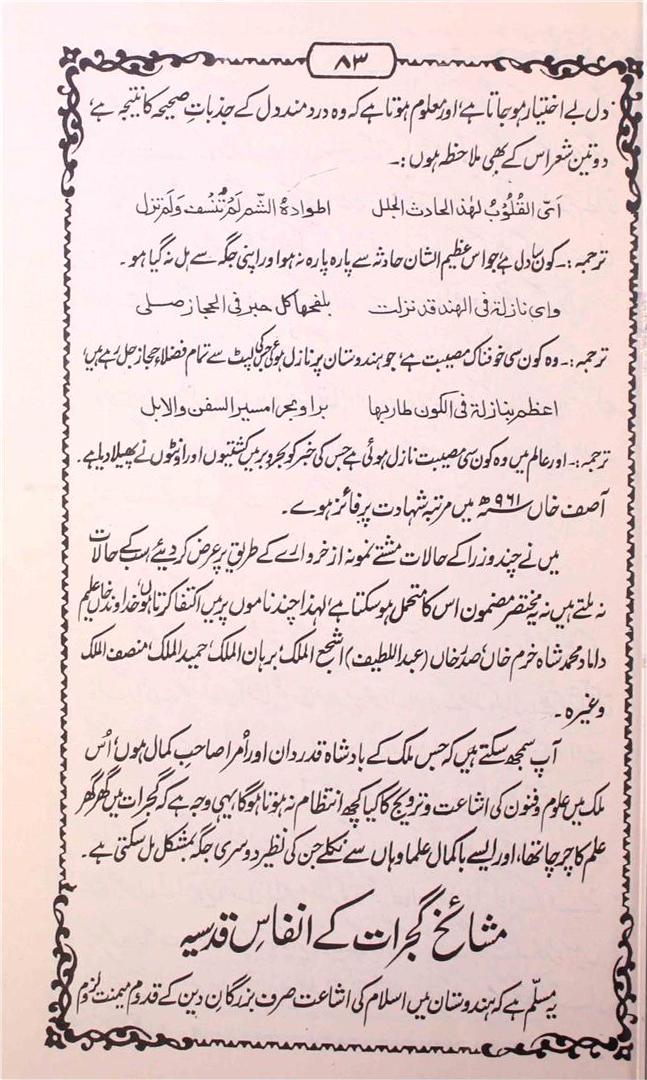 ۸۳
دل بے اختیار ہو جاتا ہے، اور معلوم ہوتا ہے کہ وہ دردمند دل کے جذباتِ صحیحہ کا نتیجہ ہے،
دو تین شعر اس کے بھی ملاحظہ ہوں :۔
اَیّ القُلُوْبُ لهٰذ الحادث الجلل اطوادهُ الشّم لَمْ تُنْسُف وَلَم تزل
ترجمہ :۔ کون سا دل ہے جو اس عظیم الشان حادثہ سے پارہ پارہ نہ ہوا اور اپنی جگہ سے ہل نہ گیا ہو ۔
وای نازلة فی الهند قد نزلت بلفحها کل حبر فی الحجاز صلی
ترجمہ :۔ وہ کون سی خوفناک مصیبت ہے، جو ہندوستان پر نازل ہوئی جس کی لپٹ سے تمام فضلاءِ حجاز جل رہے ہیں،
اعظم بنازلة فی الکون طار بها برا وبحرا مسیر السفن والابل
ترجمہ :۔ اور عالم میں وہ کون سی مصیبت نازل ہوئی ہے جس کی خبر کو بحر و بر میں کشتیوں اور اونٹوں نے پھیلا دیا ہے ۔
آصف خاں ۹۶۱ھ میں مرتبہ شہادت پر فائز ہوے ۔
میں نے چند وزرا کے حالات مشتے نمونہ از خروارے کے طریق پر عرض کر دیئے، سب کے حالات
نہ ملتے ہیں نہ یہ مختصر مضمون اس کا متحمل ہو سکتا ہے، لہٰذا چند ناموں پر میں اکتفا کرتا ہوں، خداوند خاں علیم
داماد محمد شاہ خرم خاں، صدر خاں (عبد اللطیف) اشجع الملک، برہان الملک، حمید الملک، منصف الملک
وغیرہ ۔
آپ سمجھ سکتے ہیں کہ جس ملک کے بادشاہ قدردان اور اُمرا صاحبِ کمال ہوں، اُس
ملک میں علوم و فنون کی اشاعت و ترویج کا کیا کچھ انتظام نہ ہوتا ہوگا، یہی وجہ ہے کہ گجرات میں گھر گھر
علم کا چرچا تھا، اور ایسے باکمال علما وہاں سے نکلے جن کی نظیر دوسری جگہ بمشکل مل سکتی ہے ۔
مشائخِ گجرات کے انفاسِ قدسیہ
یہ مسلّم ہے کہ ہندوستان میں اسلام کی اشاعت صرف بزرگانِ دین کے قدوم میمنت لزوم